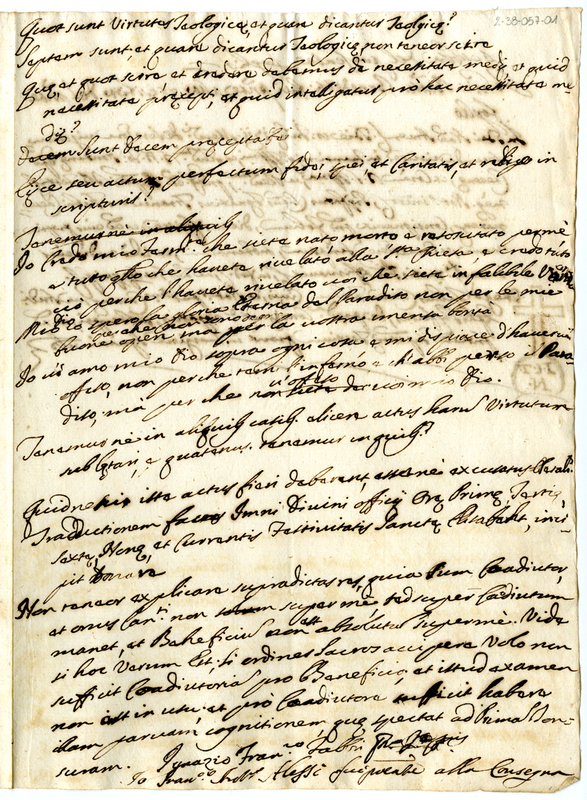 2-38-057-01
Quot sunt Virtutes Teologicę, et quare dicantur Teolgicę?
Septem sunt, et quare dicantur Teologicę non teneor scire
Quę, et quot scire et credere debemus de necessitate medij, et quid
necessitate pręcepti, et quid intelligatur pro hac necessitate me-
dij?
decem sunt decem pręcepta
Elice seu actum perfectum fidei, spei, et Caritatis, et redige in
scripturis?
Tenemur ne in
Io Credo mio che siete nato morto e resoscitato per me
e tutto ciò che havete rivelato alla Sta Chiesa, e credo tutto
ciò perche l'havete rivelato voi che siete infallibile
Mio Dio spero la gloria Eterna del Paradiso non per le mie
buone opere ma per la vostra imensa bontà
Io vi amo mio Dio sopra ogni cosa e mi dispiace d'havervi
offeso, non perche tem l'inferno e ch'abbi perso il Para-
diso, ma per che v'ò offeso mio Dio.
Tenemur ne in aliquib casib. elicere actus harum Virtutum
sub, e quatenus. tenemur in quib?
Quidne isti actus fieri deberent, excusatus
Traductionem Imni Divini officij Orę Primę, Tertię,
Sextę, Nonę, et Currentis Festivitatis Sanctę Elisabeht, inci-
pit
Non teneor explicare supradictas res, quia sum Coadiutor,
et onus non super me, sed super Coadiutum
manet, et Beneficium non est absolutum super me. Vide
si hoc Verum Est. Si ordines sacros accipere Volo non
sufficit Coadiutoria pro Beneficio, et istud examen
non est in usu, et pro Coadiutore sufficit habere
illam parvam cognitionem quę spectat ad primam Ton-
suram. Ignazio Fran.co Fabbri
Io Fran.co Alessi fui presente alla Consegna